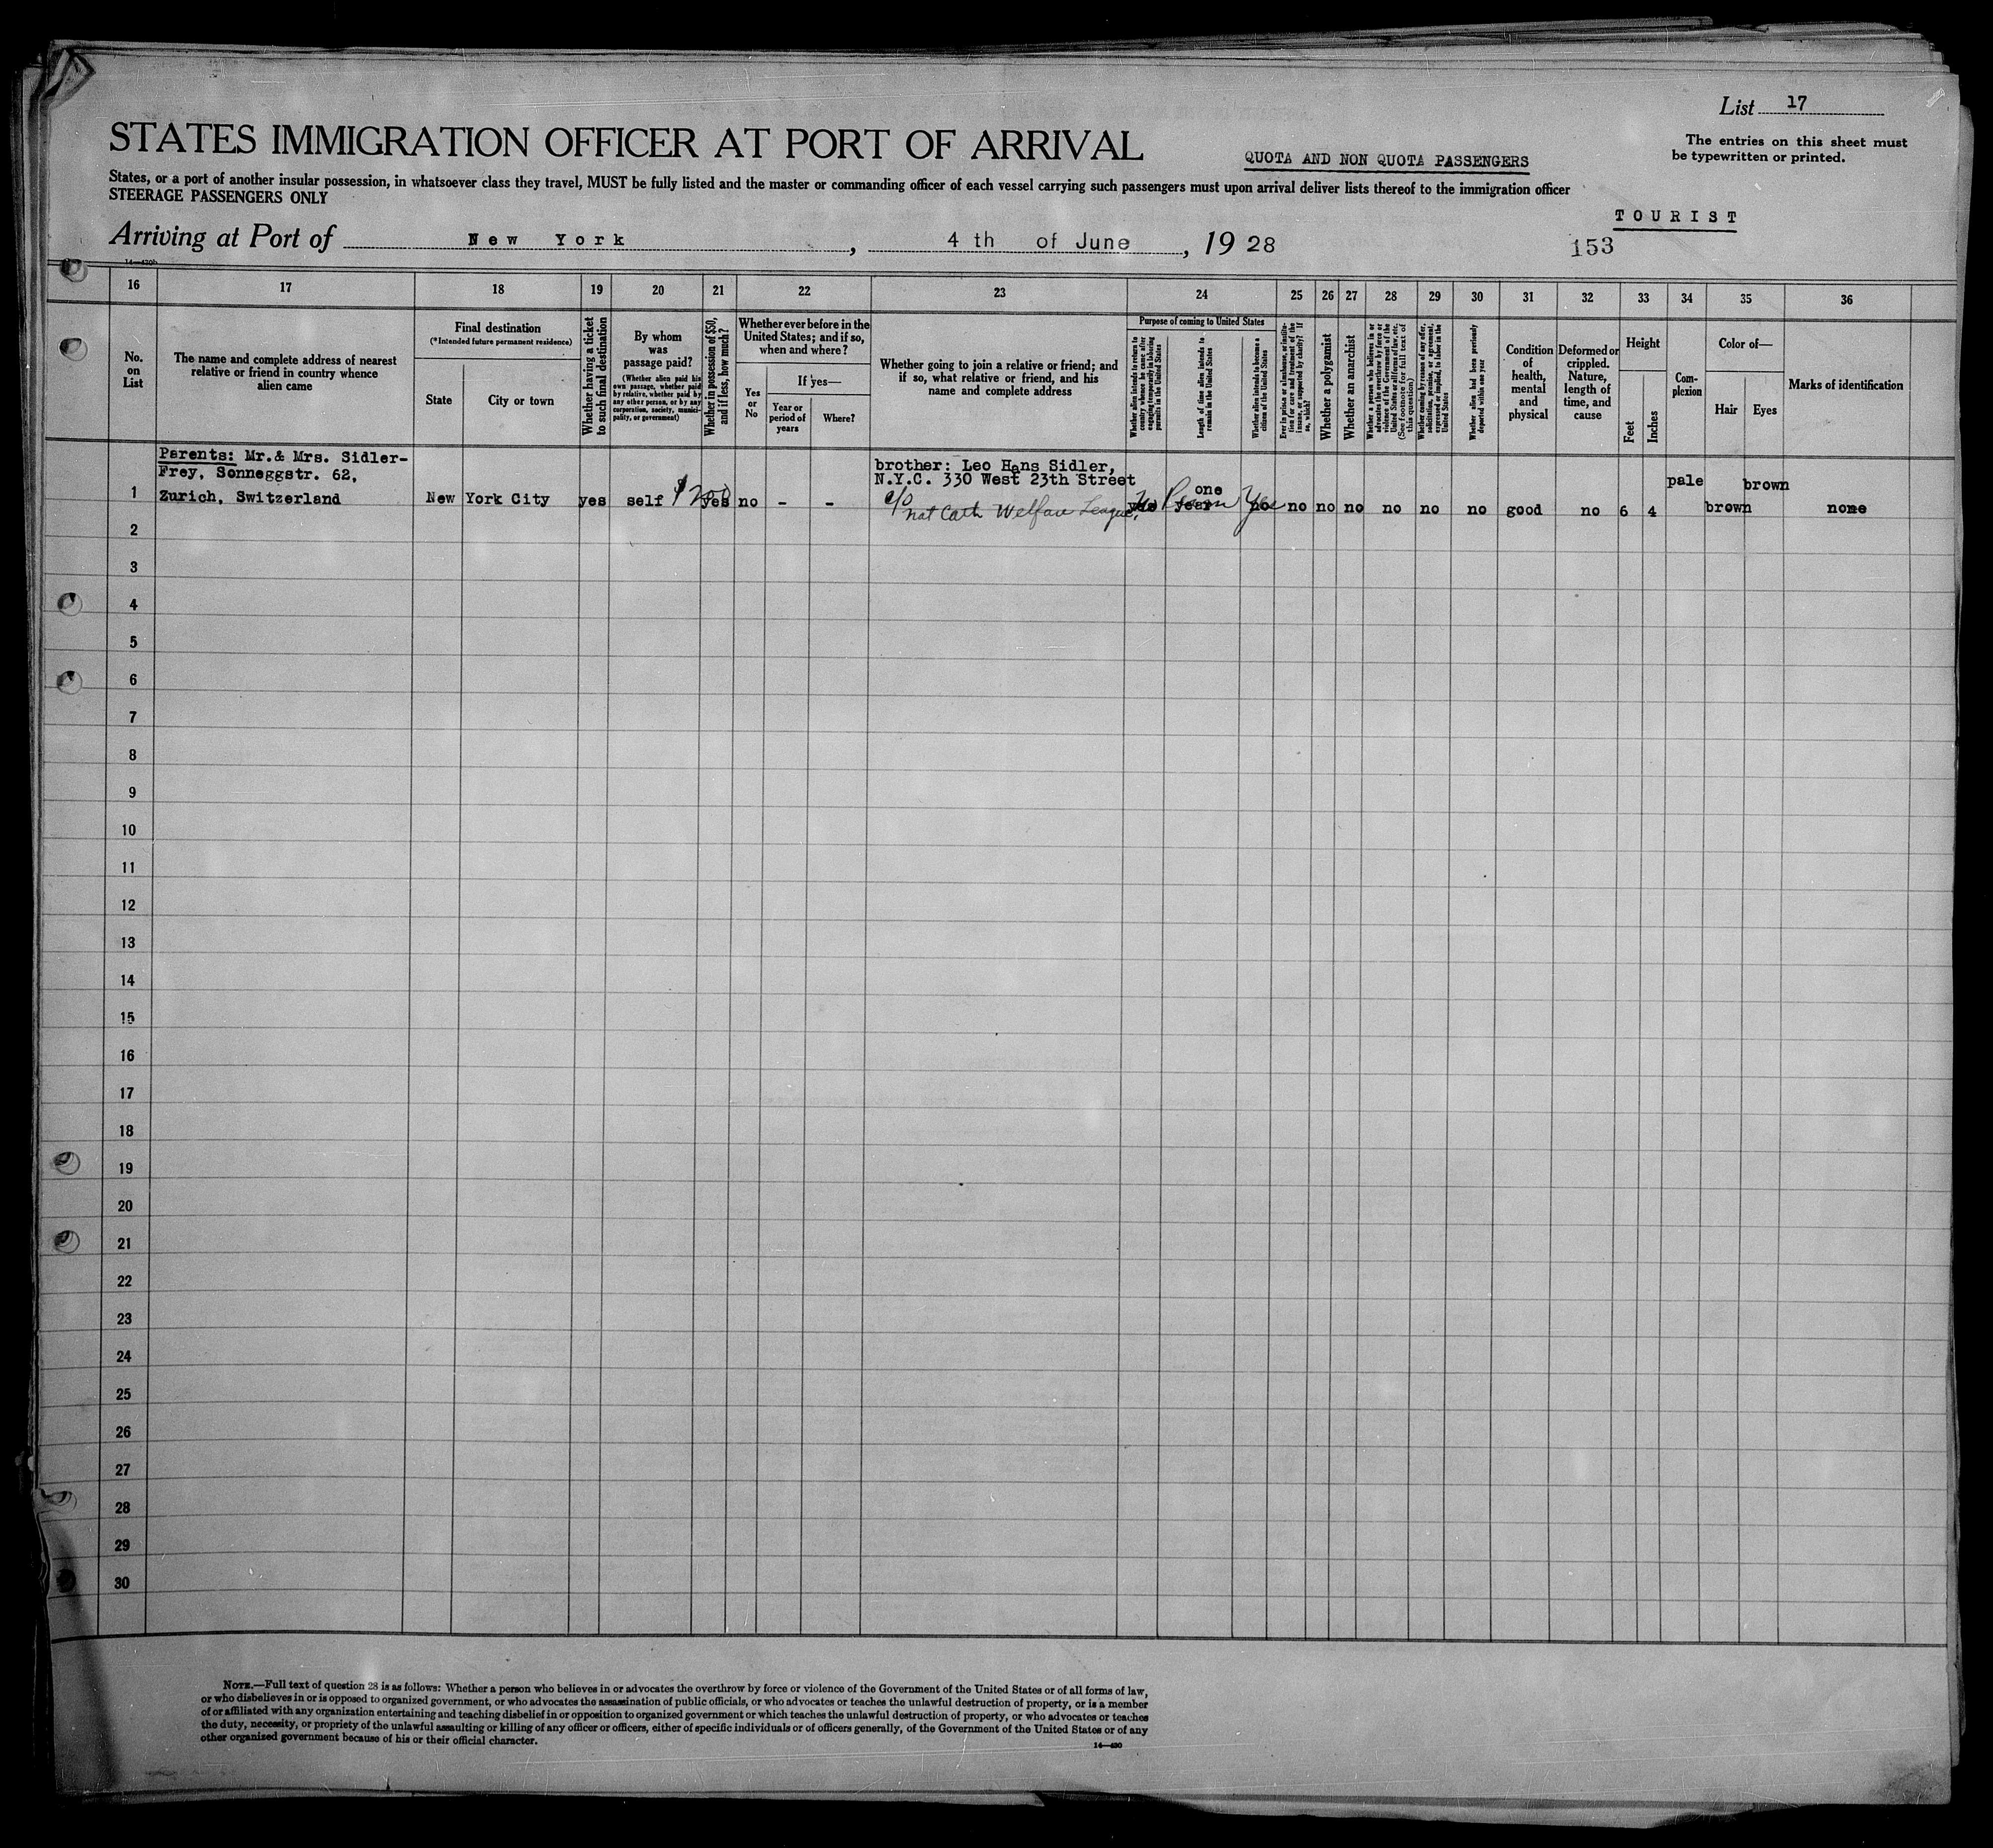 List 17
STATES IMMIGRATION OFFICER AT PORT OF ARRIVAL
QUOTA AND NON QUOTA PASSENGERS
The entries on this sheet must
be typewritten or printed.
States, or a port of another insular possession, in whatsoever class they travel, MUST be fully listed and the master or commanding officer of each vessel carrying such passengers must upon arrival deliver lists thereof to the immigration officer
STEERAGE PASSENGERS ONLY
TOURIST
Arriving at Port of New York, 4 th of June, 19 28
153
14—430b
16 17 18 19 20 21 22 23 24 25 26 27 28 29 30 31 32 33 34 35 36
No.
on
List
The name and complete address of nearest
relative or friend in country whence
alien came
Final destination
(*Intended future permanent residence)
State
City or town
Whether having a ticket
to such final destination
By whom
was
passage paid?
(Whether alien paid his
own passage, whether paid
by relative, whether paid by
any other person, or by any
corporation, society, munici-
pality, or government)
Whether in possession of $50,
and if less, how much?
Whether ever before in the
United States; and if so,
when and where?
Yes
or
No
If yes—
Year or
period of
years
Where?
Whether going to join a relative or friend; and
if so, what relative or friend, and his
name and complete address
Purpose of coming to United States
Whether alien intends to return to
country whence he came after
engaging temporarily in laboring
pursuits in the United States
Length of time alien intends to
remain in the United States
Whether alien intends to become a
citizen of the United States
Ever in prison or almshouse, or institu-
tion for care and treatment of the
insane, or supported by charity? If
so, which?
Whether a polygamist
Whether an anarchist
Whether a person who believes in or
advocates the overthrow by force or
violence of the Government of the
United States or all forms of law, etc.
(See footnote for full text of
this question)
Whether coming by reason of any offer,
solicitation, promise, or agreement,
expressed or implied, to labor in the
United States
Whether alien had been previously
deported within one year
Condition
of
health,
mental
and
physical
Deformed or
crippled.
Nature,
length of
time, and
cause
Height
Feet
Inches
Com-
plexion
Color of—
Hair
Eyes
Marks of identification
Parents: Mr.& Mrs. Sidler-
Frey, Sonneggstr. 62,
Zurich, Switzerland
1
New York City
yes
self
$200
yes
no
-
-
brother: Leo Hans Sidler,
N.Y.C. 330 West 23th Street
c/o
Nat Cath Welfare League,
No
yes
one
year
Perm
Yes
no
no no no no no no good no 6 4
pale
brown
brown
none
2
3
4
5
6
7
8
9
10
11
12
13
14
15
16
17
18
19
20
21
22
23
24
25
26
27
28
29
30
NOTE.—Full text of question 28 is as follows: Whether a person who believes in or advocates the overthrow by force or violence of the Government of the United States or of all forms of law,
or who disbelieves in or is opposed to organized government, or who advocates the assassination of public officials, or who advocates or teaches the unlawful destruction of property, or is a member
of or affiliated with any organization entertaining and teaching disbelief in or opposition to organized government or which teaches the unlawful destruction of property, or who advocates or teaches
the duty, necessity, or propriety of the unlawful assaulting or killing of any officer or officers, either of specific individuals or of officers generally, of the Government of the United States or of any
other organized government because of his or their official character.
14—430